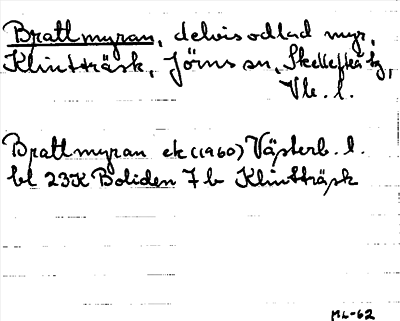 Brattmyran, delvis odlad myr,
Klintträsk, Jörns sn, Skellefteå tg,
Vb. l.
Brattmyran ek (1960) Västerb. l.
bl 23K Boliden 7b Klintträsk
ML-62